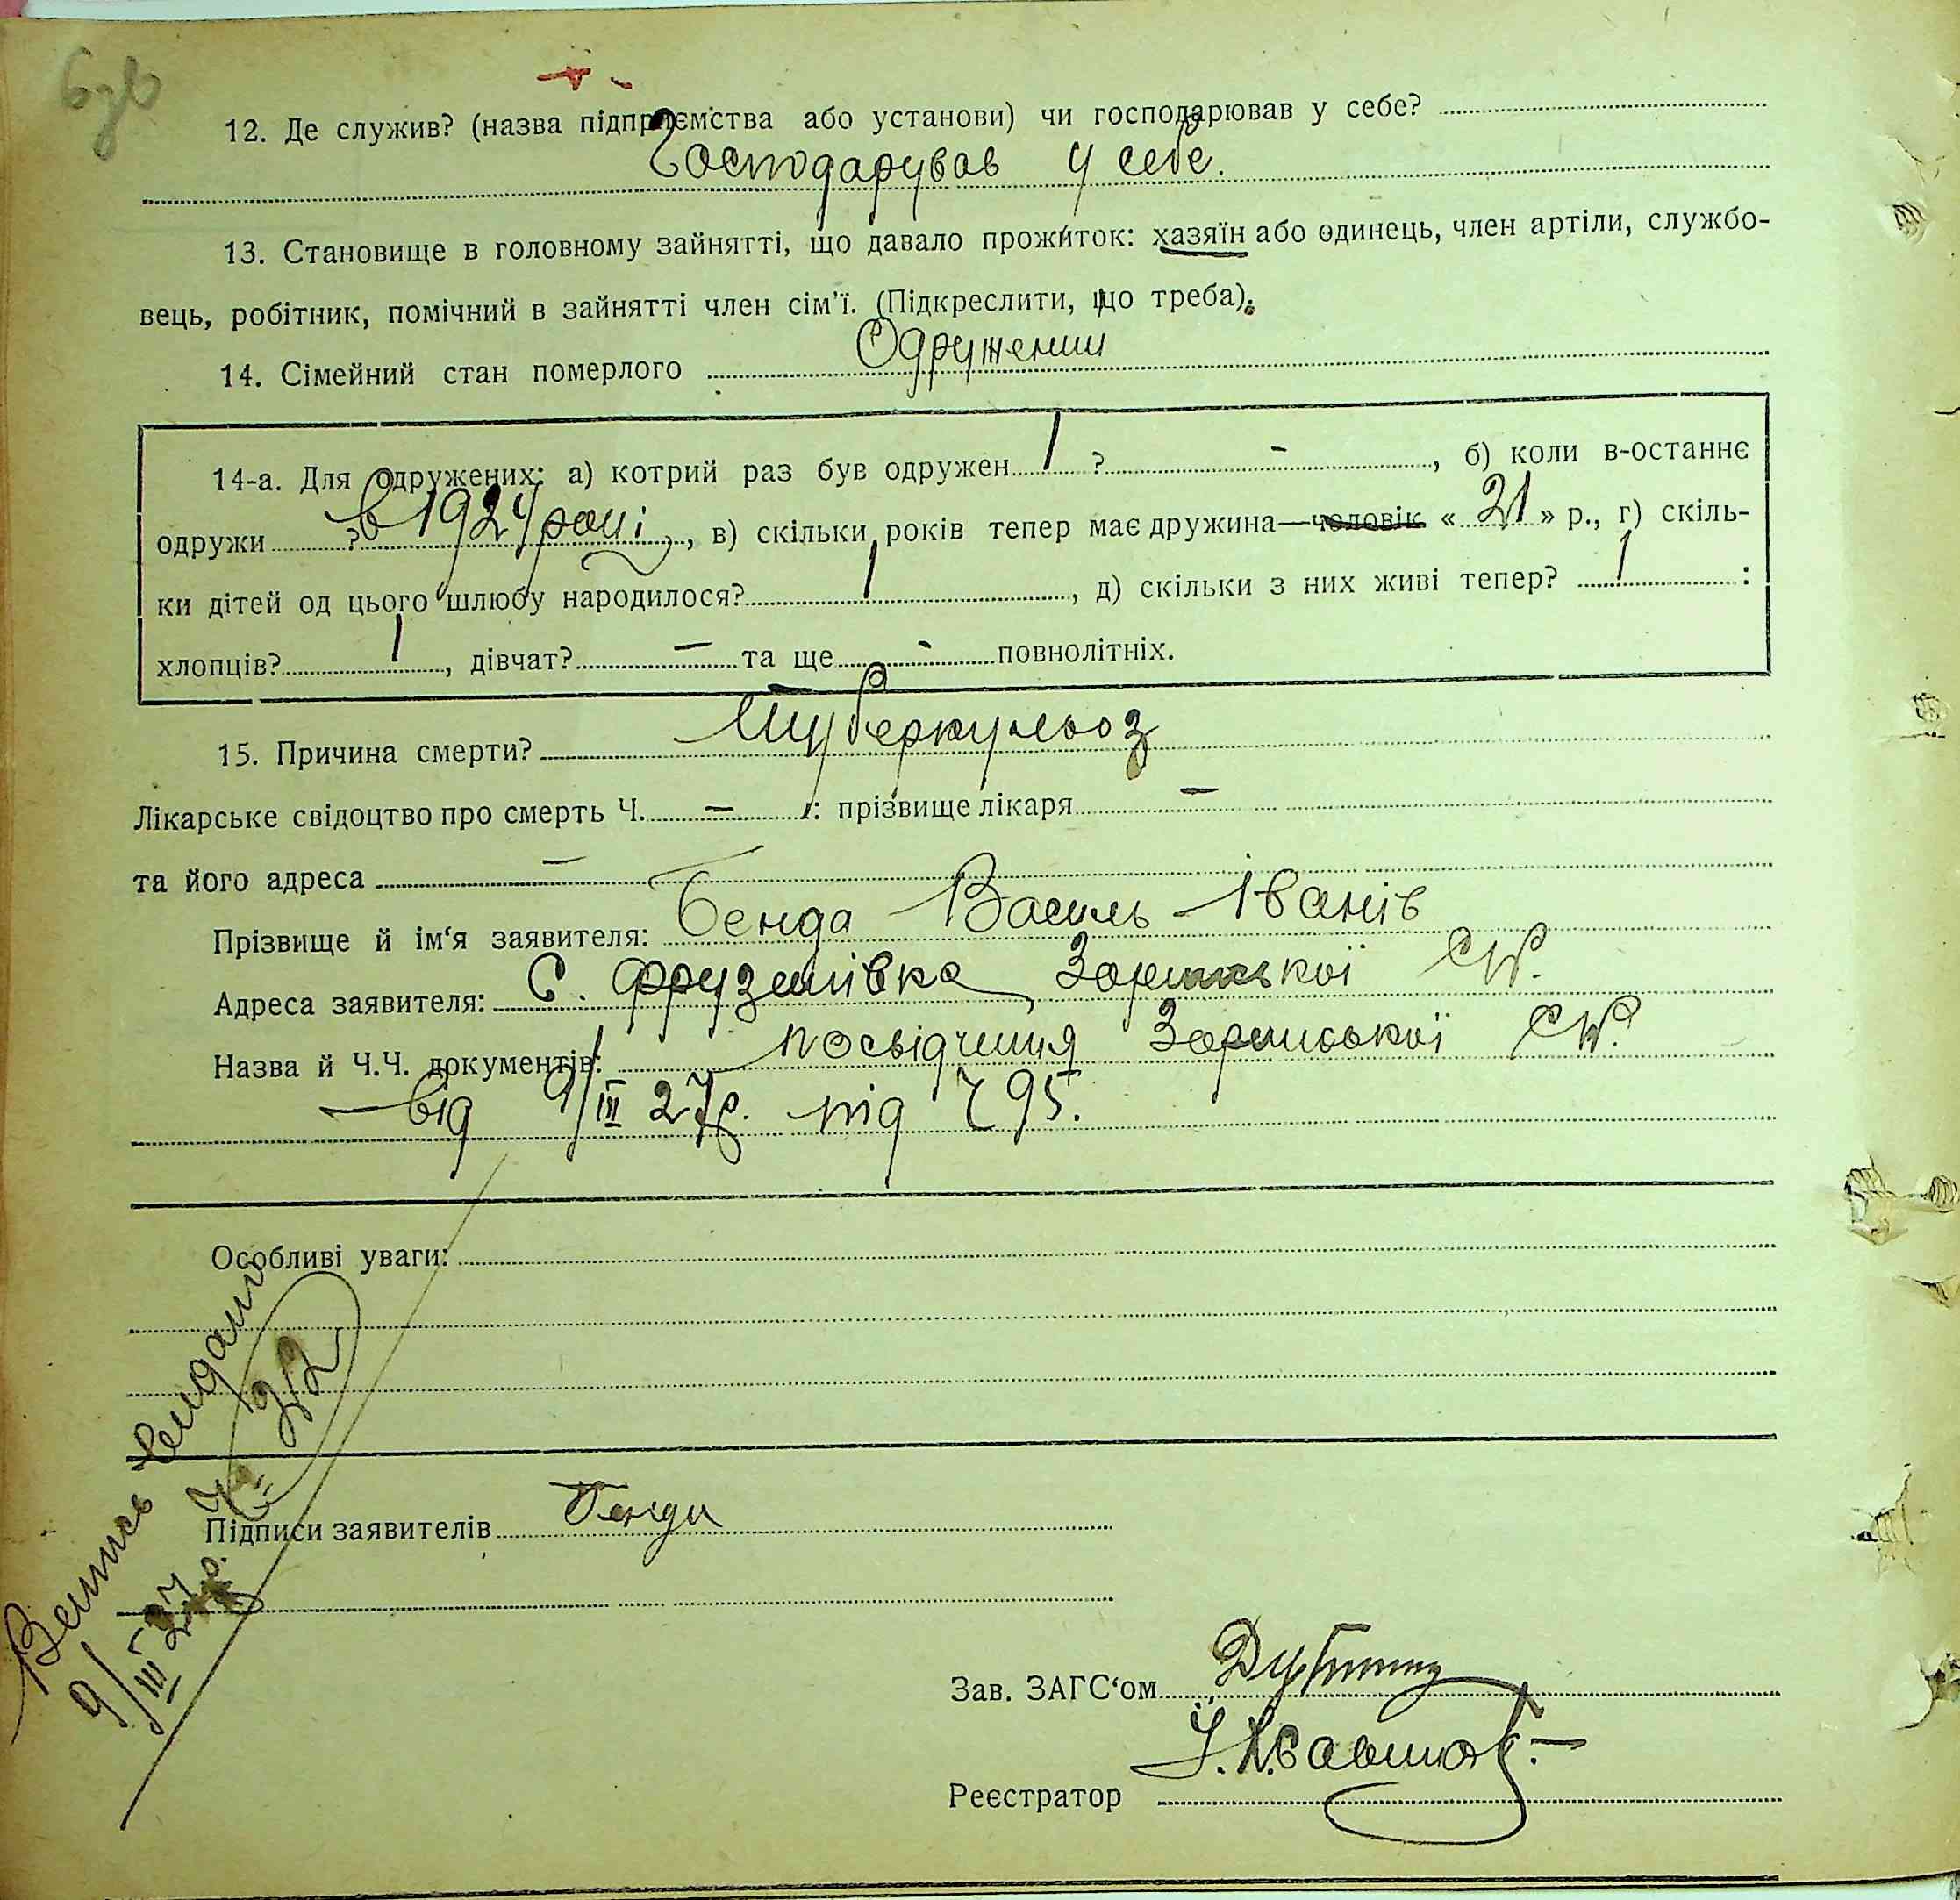 12. Де служив? (назва підприємства або установи) чи господарював у себе?
Господарував у себе.
13. Становище в головному зайнятті, що давало прожиток: хазяїн або одинець, член артіли, службо-
вець, робітник, помічний в зайнятті член сім'ї. (Підкреслити, що треба).
14. Сімейний стан померлого Одружений
14-а. Для одружених: а) котрий раз був одружен 1 ? -, б) коли в-останнє
одружи ? в 1924 році, в) скільки років тепер має дружина—чоловік « 21 » р., г) скіль-
ки дітей од цього шлюбу народилося? 1, д) скільки з них живі тепер? 1 :
хлопців? 1, дівчат? — та ще - повнолітніх.
15. Причина смерти? Туберкульоз
Лікарське свідоцтво про смерть Ч. — : прізвище лікаря —
та його адреса —
Прізвище й ім'я заявителя: Бенда Василь Іванів
Адреса заявителя: С. С/Р.
Назва й Ч.Ч. документів: посвідчення С/Р.
від 9/III 27р. під 795.
Особливі уваги:
Випись видано
9/III 27р.
Підписи заявителів Бенда
Зав. ЗАГС'ом
Реєстратор